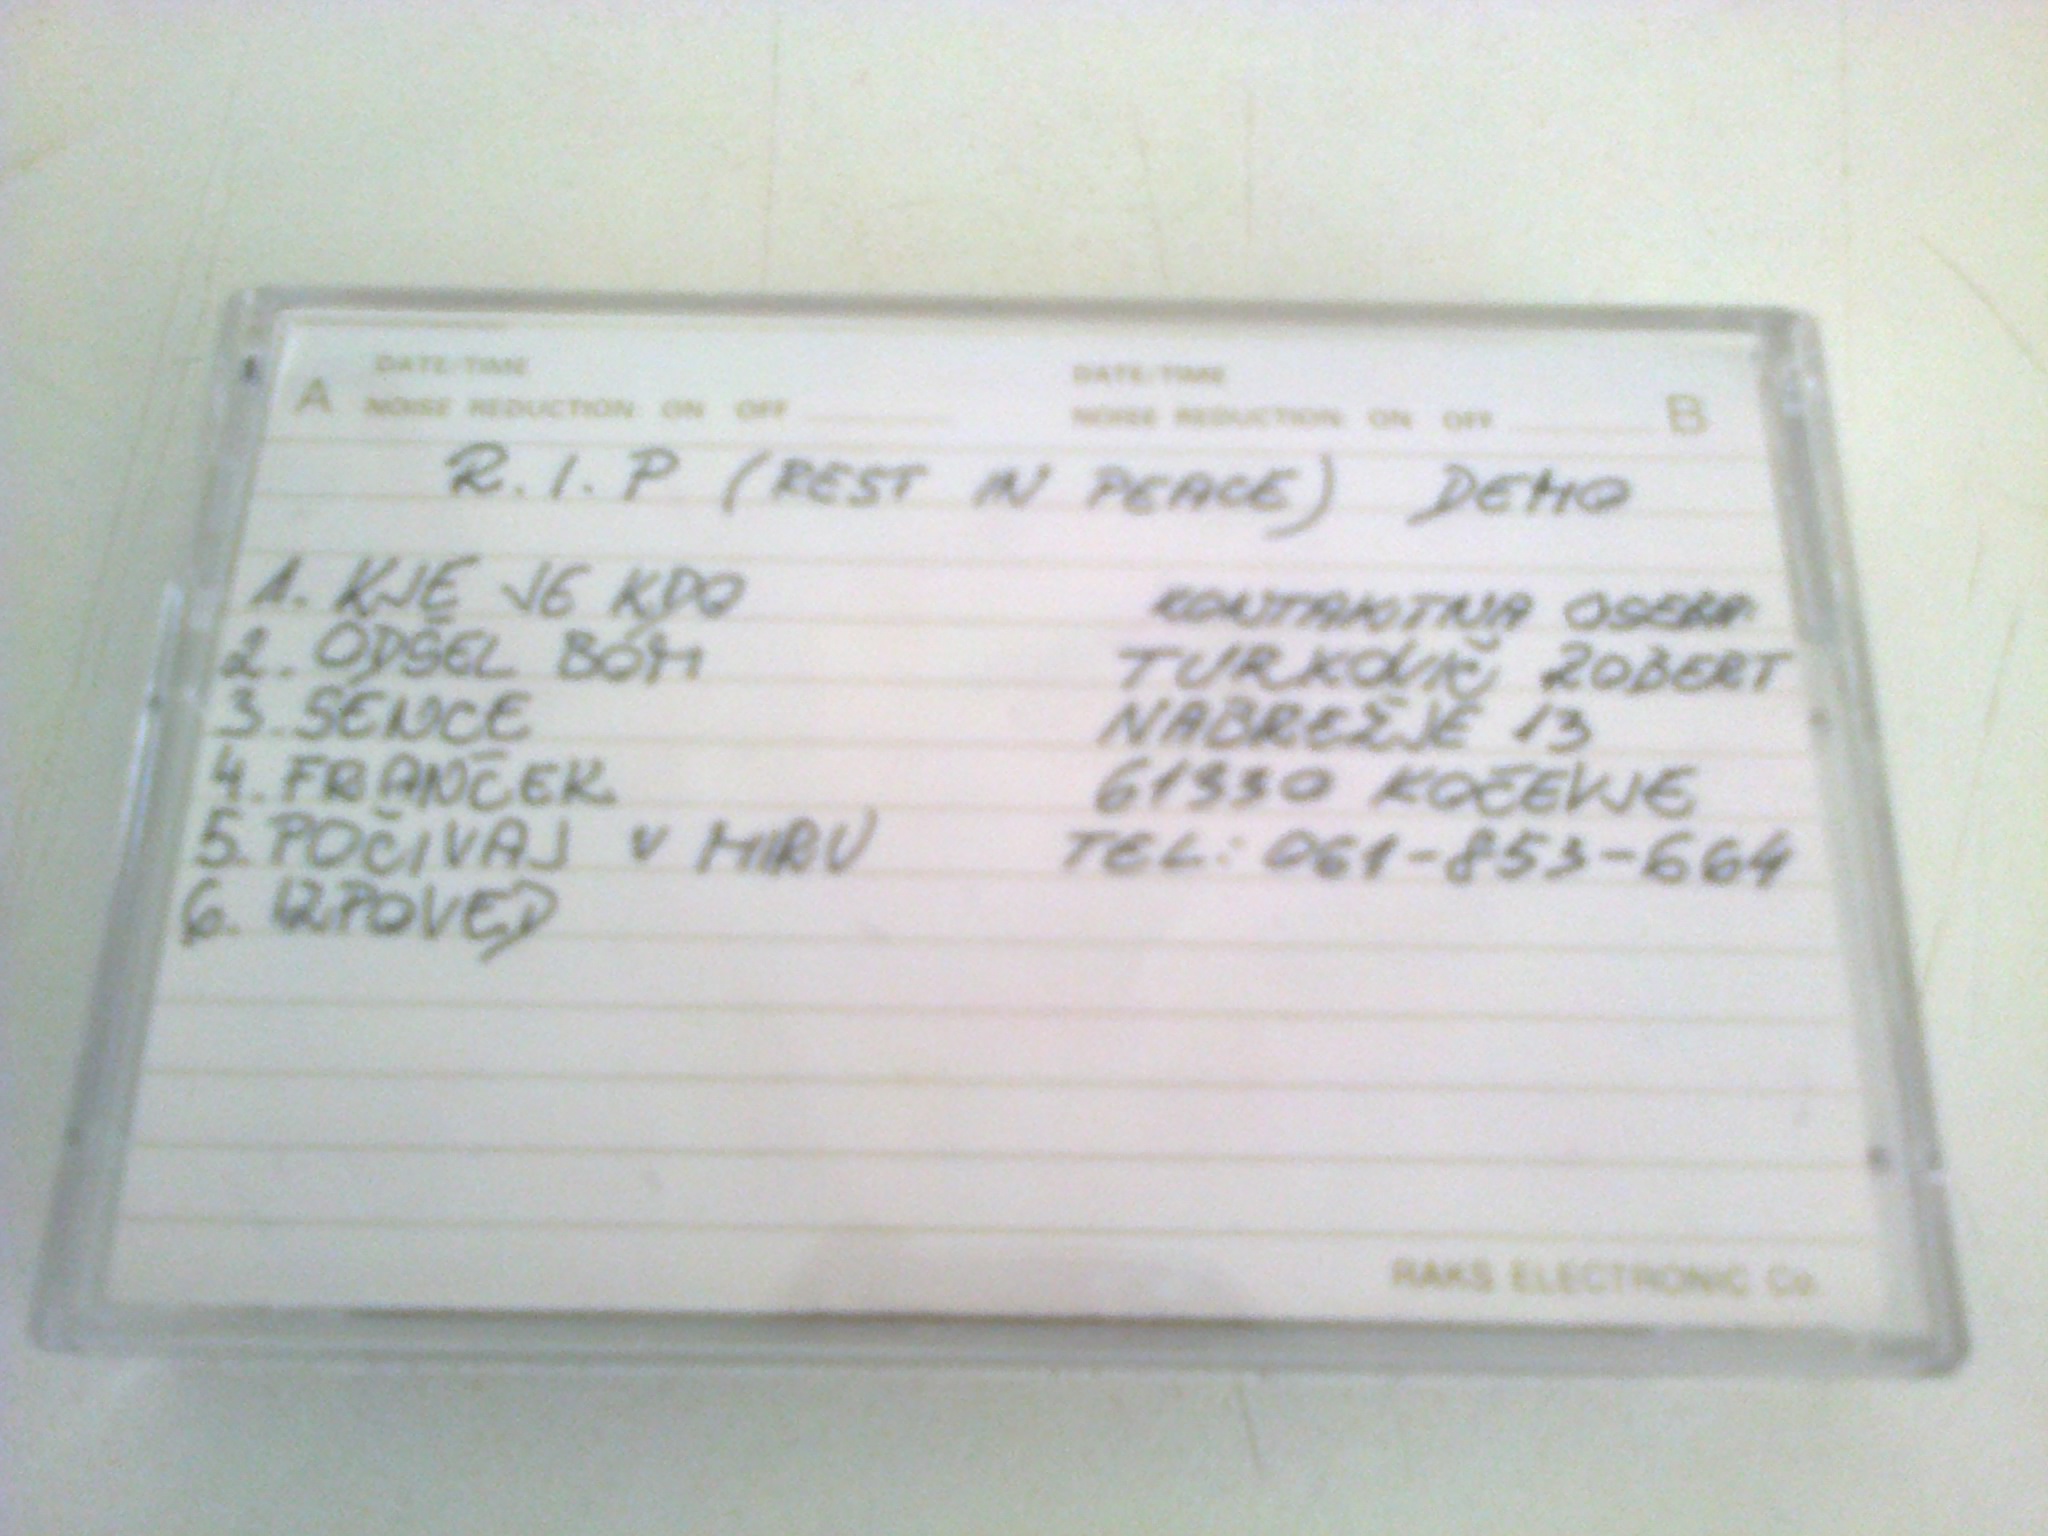 A DATE/TIME
NOISE REDUCTION ON OFF
DATE/TIME B
NOISE REDUCTION ON OFF
R.I.P (REST IN PEACE) DEMO
1. KJE JE KDO
2. ODŠEL BOM
3. SENCE
4. FRANČEK
5. POČIVAJ V MIRU
6. IZPOVED
KONTAKTNA OSEBA
TURKOVIČ ROBERT
NABREŽJE 13
61330 KOČEVJE
TEL: 061-853-664
RAKS ELECTRONIC Co.